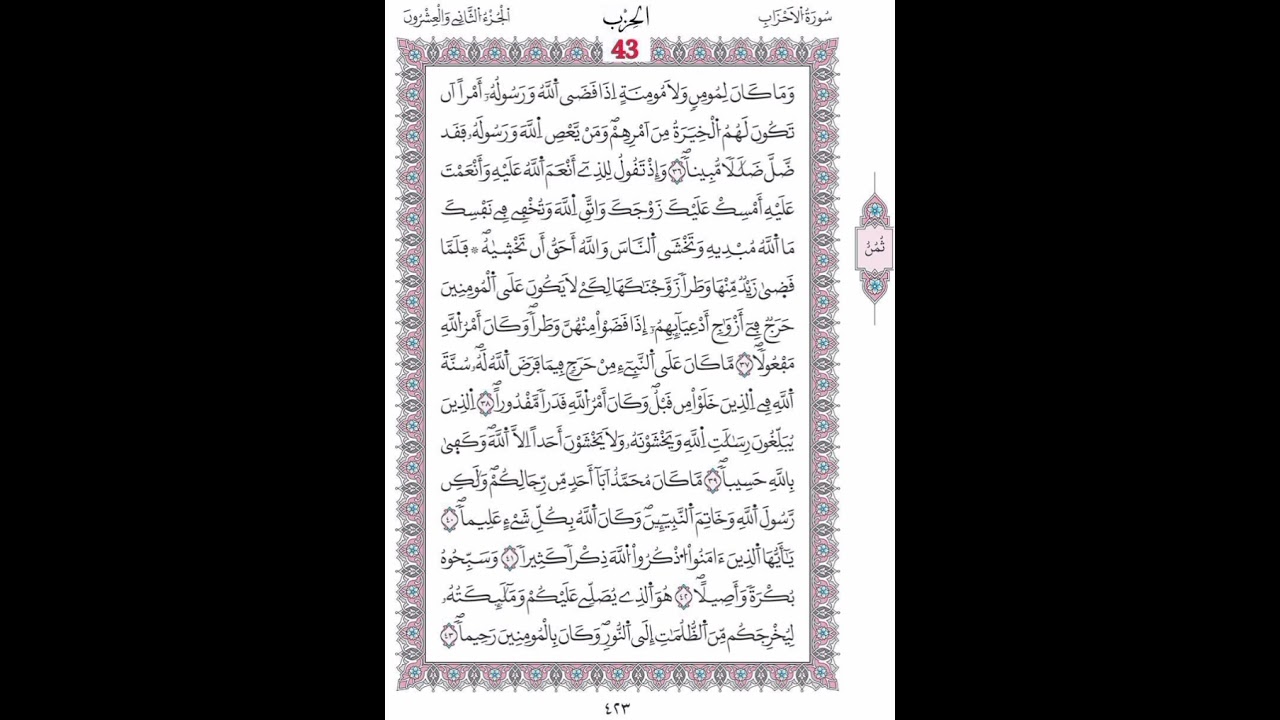 سُورَةُ الْأَحْزَابِ
الْحِزْب
43
الْجُزْءُ الثَّانِي وَالْعِشْرُونَ
وَمَا كَانَ لِمُومِنٖ وَلَا مُومِنَةٍ اِذَا قَضَى اَ۬للَّهُ وَرَسُولُهُۥٓ أَمْراً اَن
تَكُونَ لَهُمُ اُ۬لْخِيَرَةُ مِنَ اَمْرِهِمْۖ وَمَنْ يَّعْصِ اِ۬للَّهَ وَرَسُولَهُۥ فَقَد
ضَّلَّ ضَلَٰلاٗ مُّبِيناٗۖ ٣٦ وَإِذْ تَقُولُ لِلذِےٓ أَنْعَمَ اَ۬للَّهُ عَلَيْهِ وَأَنْعَمْتَ
عَلَيْهِ أَمْسِكْ عَلَيْكَ زَوْجَكَ وَاتَّقِ اِ۬للَّهَ وَتُخْفِے فِے نَفْسِكَ
مَا اَ۬للَّهُ مُبْدِيهِ وَتَخْشَى اَ۬لنَّاسَ وَاللَّهُ أَحَقُّ أَن تَخْش۪ىٰهُۖ * فَلَمَّا
قَض۪ىٰ زَيْدٞ مِّنْهَا وَطَراٗ زَوَّجْنَٰكَهَا لِكَےْ لَا يَكُونَ عَلَى اَ۬لْمُومِنِينَ
حَرَجٞ فِےٓ أَزْوَٰجِ أَدْعِيَآئِهِمُۥٓ إِذَا قَضَوْاْ مِنْهُنَّ وَطَراٗۖ وَكَانَ أَمْرُ اُ۬للَّهِ
مَفْعُولاٗۖ ٣٧ مَّا كَانَ عَلَى اَ۬لنَّبِےٓءِ مِنْ حَرَجٖ فِيمَا فَرَضَ اَ۬للَّهُ لَهُۥۖ سُنَّةَ
اَ۬للَّهِ فِے اِ۬لذِينَ خَلَوْاْ مِن قَبْلُۖ وَكَانَ أَمْرُ اُ۬للَّهِ قَدَراٗ مَّقْدُوراًۖ ٣٨ اِ۬لذِينَ
يُبَلِّغُونَ رِسَٰلَٰتِ اِ۬للَّهِ وَيَخْشَوْنَهُۥ وَلَا يَخْشَوْنَ أَحَداً اِلَّا اَ۬للَّهَۖ وَكَف۪ىٰ
بِاللَّهِ حَسِيباٗۖ ٣٩ مَّا كَانَ مُحَمَّدٌ اَبَآ أَحَدٖ مِّن رِّجَالِكُمْۖ وَلَٰكِن
رَّسُولَ اَ۬للَّهِ وَخَاتِمَ اَ۬لنَّبِيٓـِٕينَۖ وَكَانَ اَ۬للَّهُ بِكُلِّ شَےْءٍ عَلِيماٗۖ ٤٠
يَٰٓأَيُّهَا اَ۬لذِينَ ءَامَنُواْ اُ۟ذْكُرُواْ اُ۬للَّهَ ذِكْراٗ كَثِيراٗ ٤١ وَسَبِّحُوهُ
بُكْرَةٗ وَأَصِيلاًۖ ٤٢ هُوَ اَ۬لذِے يُصَلِّے عَلَيْكُمْ وَمَلَٰٓئِكَتُهُۥ
لِيُخْرِجَكُم مِّنَ اَ۬لظُّلُمَٰتِ إِلَى اَ۬لنُّورِۖ وَكَانَ بِالْمُومِنِينَ رَحِيماٗۖ ٤٣
ثُمُنُ
٤٢٣